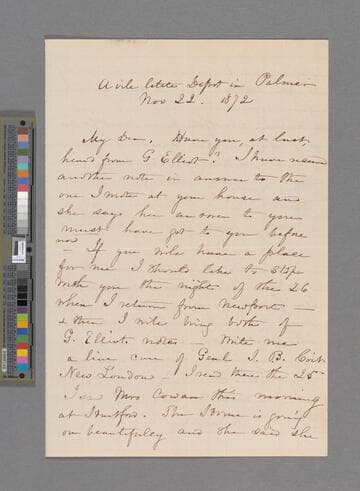 A vile little Depot in Palmer
Nov 22. 1872
My Dear, Have you, at last,
heard from G Elliot? I have received
another note in answer to the
one I wrote at your house and
she says her answer to you
must have got to you before
now
- If you will have a place
for me I should like to stop
with you the night of the 26
when I return from Newport -
& then I will bring both of
G. Elliots notes - Write me
a line care of Genl J. B.
New London - I
I see Mrs Cowan this morning
at Hartford. The Home is going
on beautifully and she said she